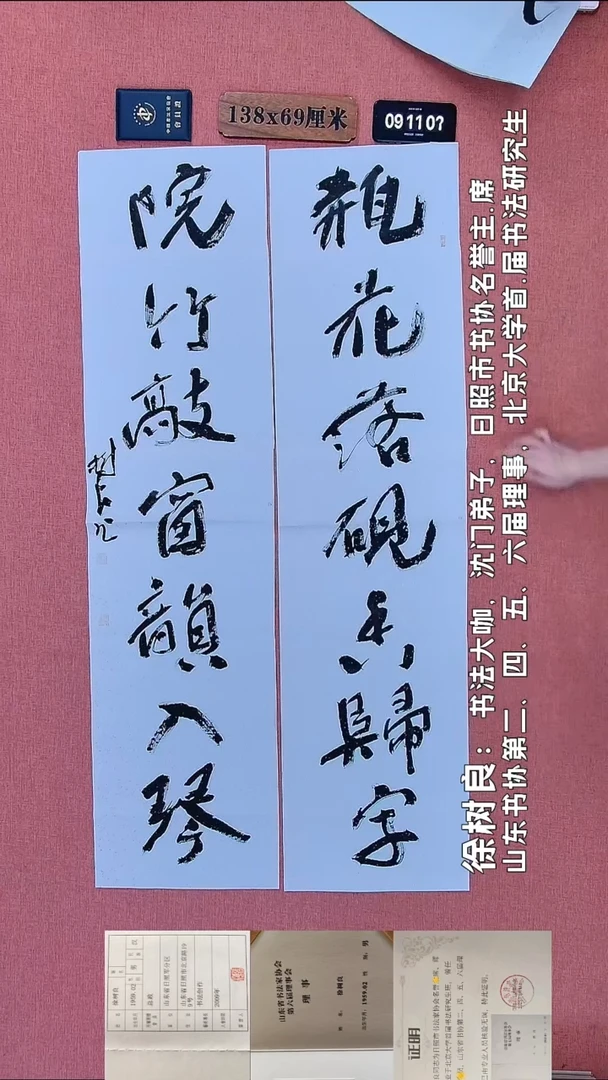 138x69厘米
09 11 07
瓶花落砚香归字
院竹敲窗韵入琴
树良
徐树良：书法大咖，沈门弟子，日照市书协名誉主.席
山东书协第二、四、五、六届理事，北京大学首.届书法研究生
会员证
山东省书法家协会
第六届理事会
理事
徐树良
1959.02
男
证明